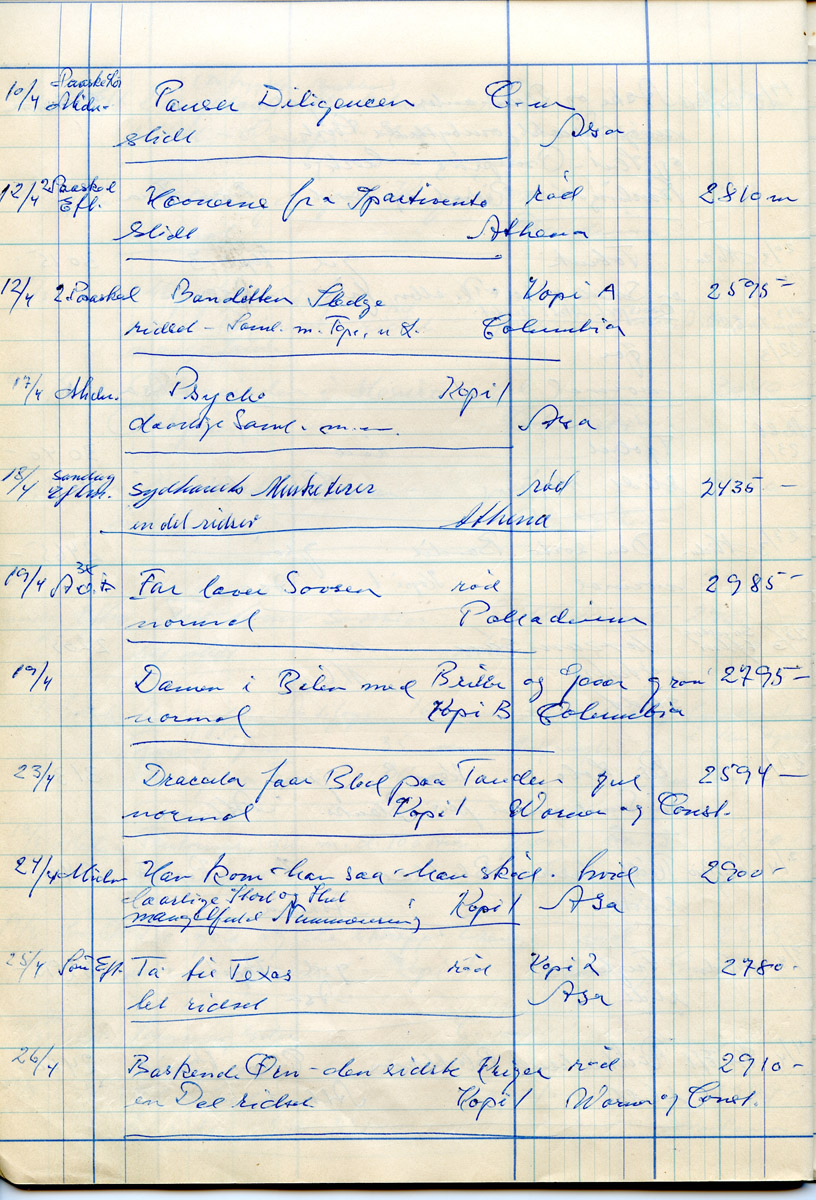 10/4 Midn. Panser Diligencen C-m
slidt Asa
12/4 2 Paasked Eft. fra Spartivento rød 2810 m
Slidt Athena
12/4 2 Paasked Banditten Sledge Kopi A 2595 -
ridset - Saml. m. Columbia
17/4 Midn. Psycho Kopi 1
daarlige Saml. Asa
18/4 Søndag Eftm. Sydhavets Musketerer rød 2435 -
en del ridser Athena
19/4 Far laver Sovsen rød 2985 -
normal Palladium
19/4 Damen i Bilen med Briller og Gevær grøn 2795 -
normal Kopi B Columbia
23/4 Dracula faar Blod paa Tanden gul 2594 -
normal Kopi 1 Warner og Const.
24/4 Midn Han kom - han saa - han skød. hvid 2900 -
daarlige Start og Slut
mangelfuld Nummerering Kopi 1 Asa
25/4 Søn Eft. Ta' til Texas rød Kopi 2 2780 -
let ridset Asa
26/4 Baskende Ørn - den sidste Kriger rød 2910 -
en Del ridset Kopi 1 Warner og Const.